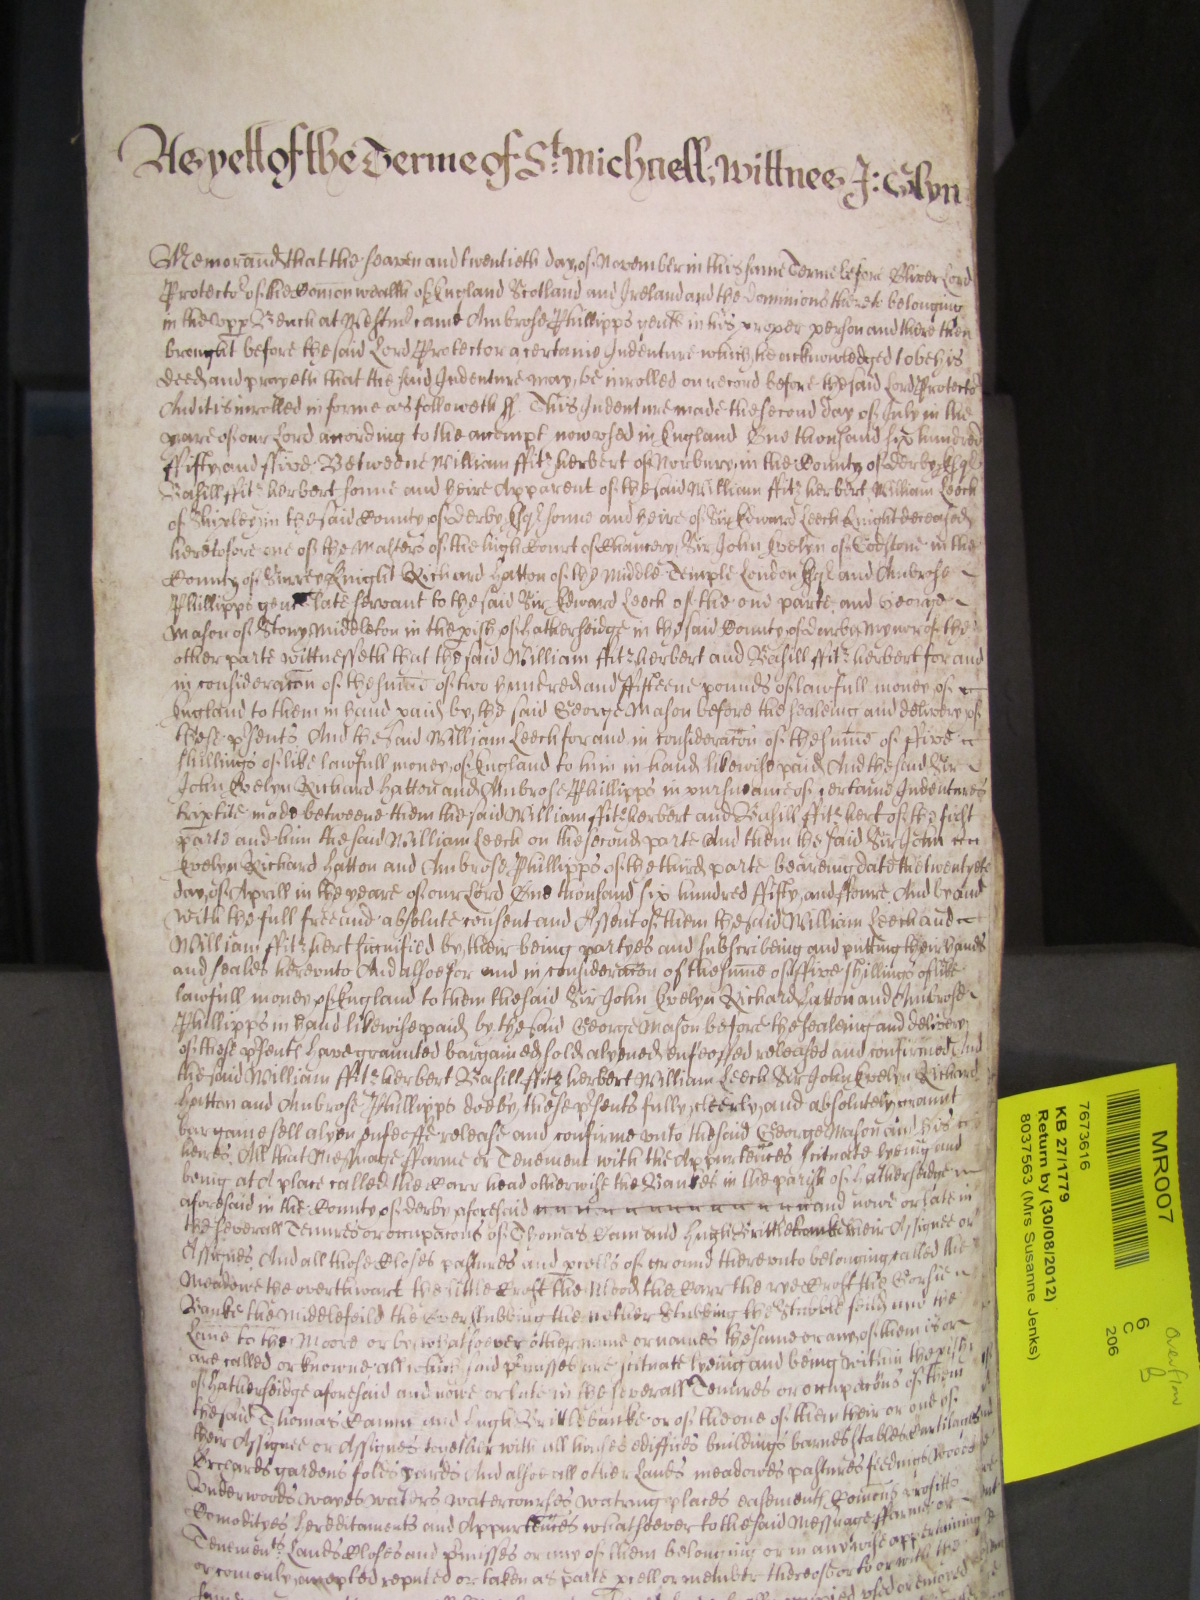 As yett of the Terme of St Michaell, Wittnes J: Glyn
Memorand that the seaven and twentieth day of November in this same Terme before Oliver Lord
Protector of the Comon wealth of England Scotland and Ireland and the dominions thereto belonging
in the upp Bench at Westmr came Ambrose Phillipps gent in his proper person and there then
brought before the said Lord Protector a certaine Indenture which he acknowledged to be his
deed and prayeth that the said Indenture may be inrolled on record before the said Lord Protector
And it is inrolled in forme as followeth ss. This Indenture made the second day of July in the
yeare of our Lord according to the accompt now used in England One thousand six hundred
ffifty and ffive Betweene William ffitzherbert of Norbury in the County of Derby Esqr
Basill ffitzherbert sonne and heire Apparent of the said William ffitzherbert William Leech
of Shipley in the said County of Derby Esqr sonne and heire of Sir Edward Leech Knight deceased
heretofore one of the Masters of the high Court of Chancery Sir John Evelyn of Godstone in the
County of Surrey Knight Richard Hatton of the Middle Temple London Esqr and Ambrose
Phillipps gent late servant to the said Sir Edward Leech of the one parte and George
Mason of Stony Middleton in the pish of Hatherseidge in the said County of derby Mynor of the
other parte Wittnesseth that the said William ffitzherbert and Basill ffitzherbert for and
in consideracon of the sume of two hundred and ffifteene pounds of lawfull money of
England to them in hand paid by the said George Mason before the sealeing and delivery of
these psents And the said William Leech for and in consideracon of the sume of ffive
shillings of like lawfull money of England to him in hand likewise paid And the said Sir
John Evelyn Richard Hatton and Ambrose Phillipps in pursuance of certaine Indentures
triptite made betweene them the said William ffitzherbert and Basill ffitzhert of the first
parte and him the said William Leech on the second parte And them the said Sir John
Evelyn Richard Hatton and Ambrose Phillipps of the third parte beareing date the twentyeth
day of Aprill in the yeare of our Lord One thousand six hundred ffifty and ffoure And by and
with the full free and absolute consent and Assent of them the said William Leech and
William ffitzhert signified by their being partyes and subscribeing and putting their hands
and seales hereunto And alsoe for and in consideracon of the sume of ffive shillings of like
lawfull money of England to them the said Sir John Evelyn Richard Hatton and Ambrose
Phillipps in hand likewise paid by the said George Mason before the sealeing and delivery
of these psents have graunted bargained sold alyened enfeoffed released and confirmed And
the said William ffitzherbert Basill ffitzherbert William Leech Sir John Evelyn Richard
Hatton and Ambrose Phillipps doe by these psents fully cleerly and absolutely graunt
bargaine sell alyen enfeoffe release and confirme unto the said George Mason and his
heires All that Messuage ffarme or Tenement with the Appurtences scituate lyeing and
being at a place called the Carr head otherwise the Banckes in the parish of Hatherseidge
aforesaid in the County of derby aforesaid and nowe or late in
the severall Tenures or occupacons of Thomas Cam and Hugh Brittlebanke their Assignee or
Assignes And all those Closes pastures and pcells of ground thereunto belonging called the
Meadowe the overthwart the little Croft the Wood the Carr the rye Croft the Gorsie
Banke the Middlefeild the Over Stubbing the nether Stubbing the Stubble feild and the
Lane to the Moore or by whatsoever other name or names the same or any of them is or
are called or knowne all which said pmisses are scituate lyeing and being within the pish
of Hatherseidge aforesaid and nowe or late in the severall Tenures or occupacons of them
the said Thomas Camm and Hugh Brittlebanke or of the one of them their or one of
their Assignee or Assignes together with all houses edifices buildings barnes stables Curtilages
Orchards gardens folds yards And alsoe all other Lands meadowes pastures feedings Woods
Underwoods wayes waters watercourses watring places easements Comons profitts
Comodityes hereditaments and Appurtences whatsoever to the said Messuage ffarme or
Tenements Lands Closes and pmisses or any of them belonging or in any wise appertaining
or comonly accepted reputed or taken as parte pcell or member thereof or to or with the
MR007
6
C
206
7673616
KB 27/1779
Return by (30/08/2012)
8037563 (Mrs Susanne Jenks)
Overflow
B